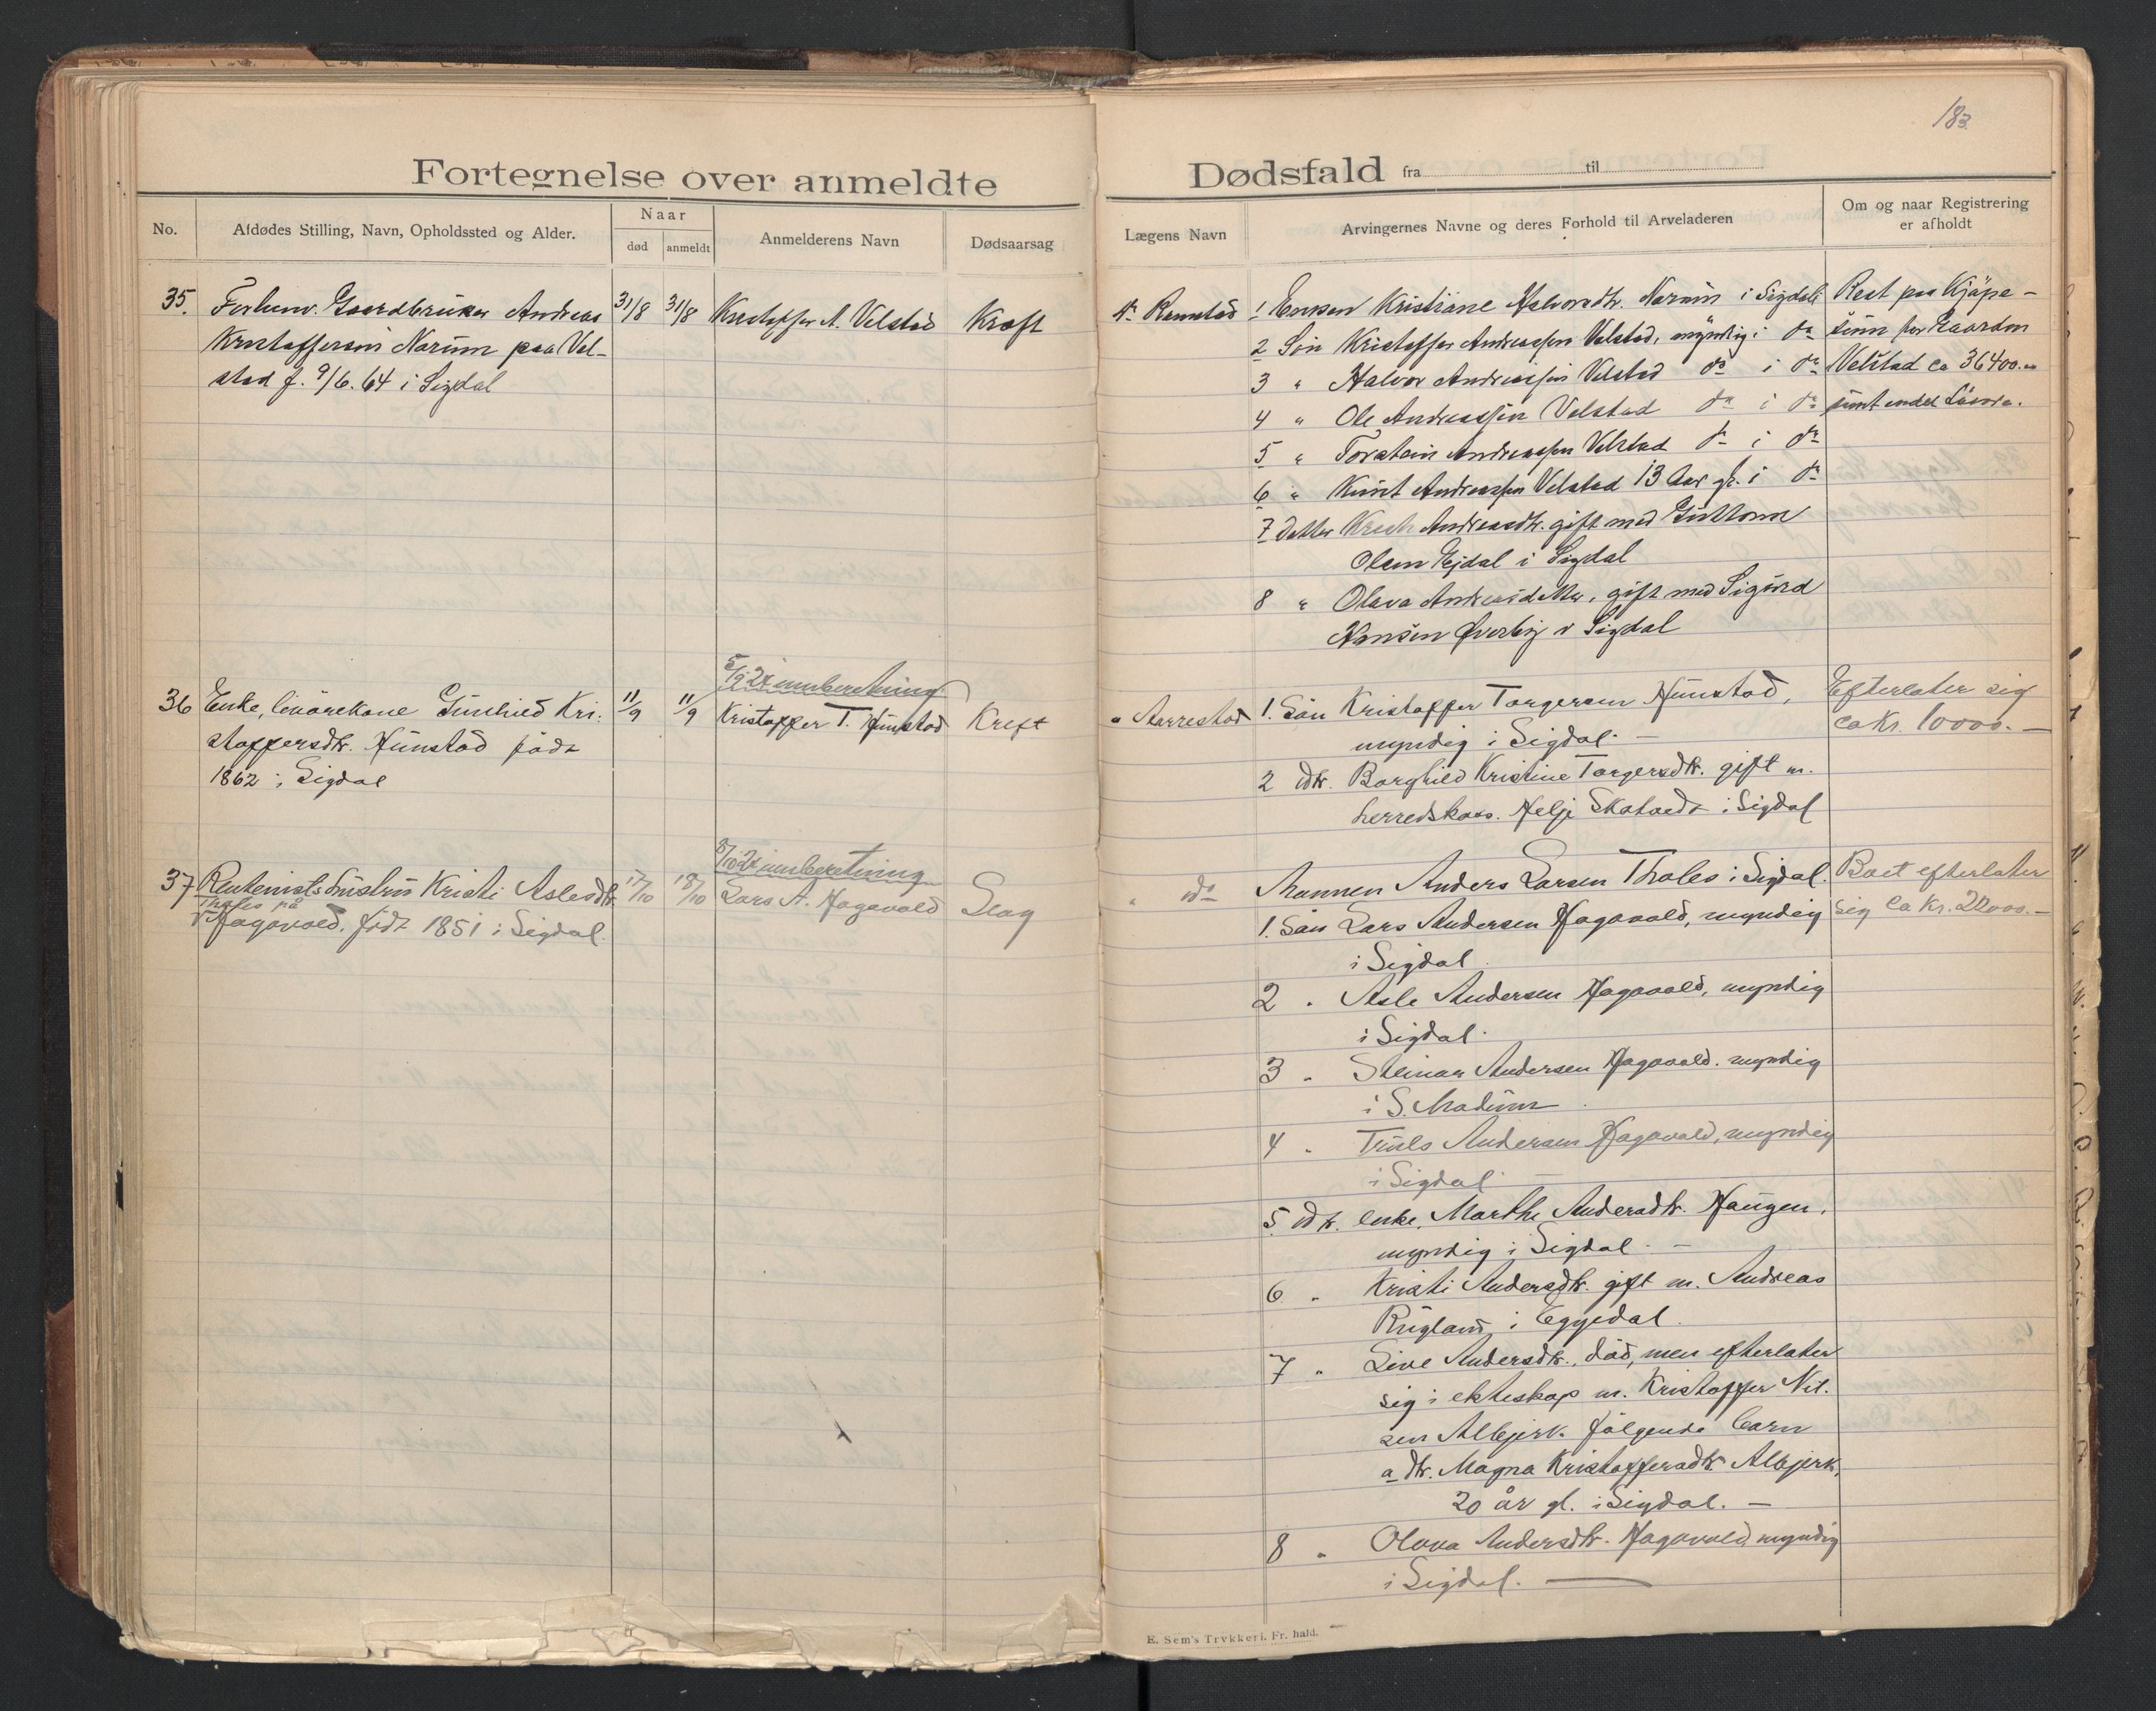 183
Fortegnelse over anmeldte Dødsfald fra til
No.
Afdødes Stilling, Navn, Opholdssted og Alder.
Naar
død
anmeldt
Anmelderens Navn
Dødsaarsag
Lægens Navn
Arvingernes Navne og deres Forhold til Arveladeren
Om og naar Registrering
er afholdt
35. Forhenv. Gaardbruker Andreas
Kristoffersen Narum paa Vel-
stad f. 9/6. 64 i Sigdal
31/8
31/8
Kristoffer A. Velstad
Kræft
Dr Ramstad
1 Enken Kristiane Halvorsdtr. Narum i Sigdal
2 Søn Kristoffer Andreassen Velstad, myndig i do
3 " Halvor Andreassen Velstad do i do
4 " Ole Andreassen Velstad do i do
5 " Torstein Andreassen Velstad do i do
6 " Knut Andreassen Velstad 13 Aar gl. i do
7 Datter Andreasdtr. gift med Guttorm
Olsen Ejdal i Sigdal
8 " Olava Andreasdatter, gift med Sigurd
Hansen Øverby i Sigdal
Rest paa Kjøpe-
sum for Gaarden
Velstad ca 36400.00
samt endel Løsøre.
36 Enke, livørekone Gunhild Kri-
stoffersdtr. Hunstad født
1862 i Sigdal
11/9
11/9
5/9 24 innberetning
Kristoffer T. Hunstad
Kreft
" Aarrestad
1. Søn Kristoffer Torgersen Hunstad,
myndig i Sigdal. —
2 dtr. Borghild Kristine Torgersdtr. gift m.
herredskass. Helje Skatvedt i Sigdal
Efterlater sig
ca Kr. 10000. —
37 Rentenists hustru Kristi Aslesdtr.
Tholes på
Hagavold, født 1851 i Sigdal.
17/10
18/10
8/10 24 innberetning
Lars A. Hagavold
Slag
" do
Mannen Anders Larsen Tholes i Sigdal.
1. Søn Lars Andersen Hagavold, myndig
i Sigdal.
2 " Asle Andersen Hagavold, myndig
i Sigdal.
3 " Steinar Andersen Hagavold. myndig
i S. Modum.
4 " Truls Andersen Hagavold, myndig
i Sigdal. —
5. dtr. enke, Marthe Andersdtr. Haugen,
myndig i Sigdal. —
6. " Kristi Andersdtr. gift m. Andreas
Rugland i Eggedal.
7 " Live Andersdtr., død, men efterlater
sig i ekteskap m. Kristoffer Nil-
sen Albjerk følgende barn
a dtr. Magna Kristoffersdtr. Albjerk,
20 år gl. i Sigdal. —
8 " Olava Andersdtr. Hagavold, myndig
i Sigdal. —
Boet efterlater
sig Ca Kr. 22000. —
E. Sem's Trykkeri, Fr. hald.